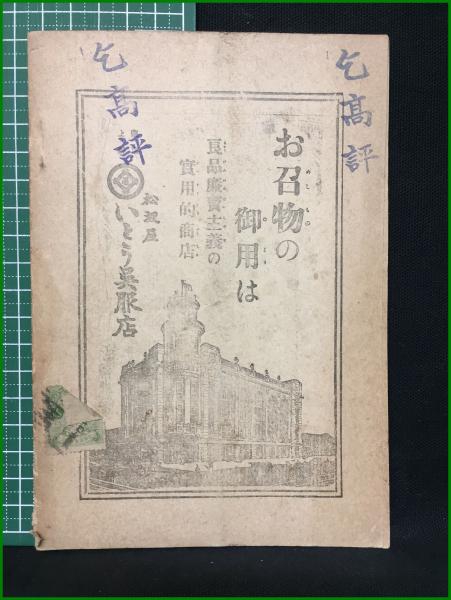 乞高評
お召物の
御用は
良品廉賣主義の
實用的商店
松坂屋
いとう呉服店
乞高評